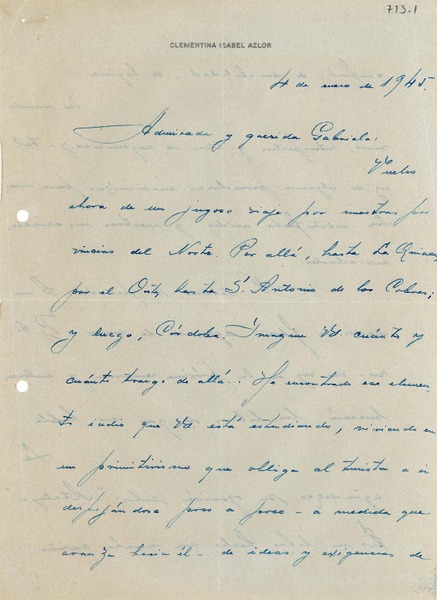 713.1
CLEMENTINA ISABEL AZLOR
4 de enero de 1945.
Admirada y querida Gabriela:
Vuelvo
ahora de un jugoso viaje por nuestras pro
vincias del Norte. Por allá, hasta La Quiaca;
por el Oeste, hasta S. Antonio de los Cobres;
y luego, Córdoba. Imagine Vd cuánto y
cuánto traigo de allá... He encontrado ese elemen
to indio que Vd está estudiando, viviendo en
un primitivismo que obliga al turista a ir
despojándose poco a poco - a medida que
avanza hacia él - de ideas y exigencias de